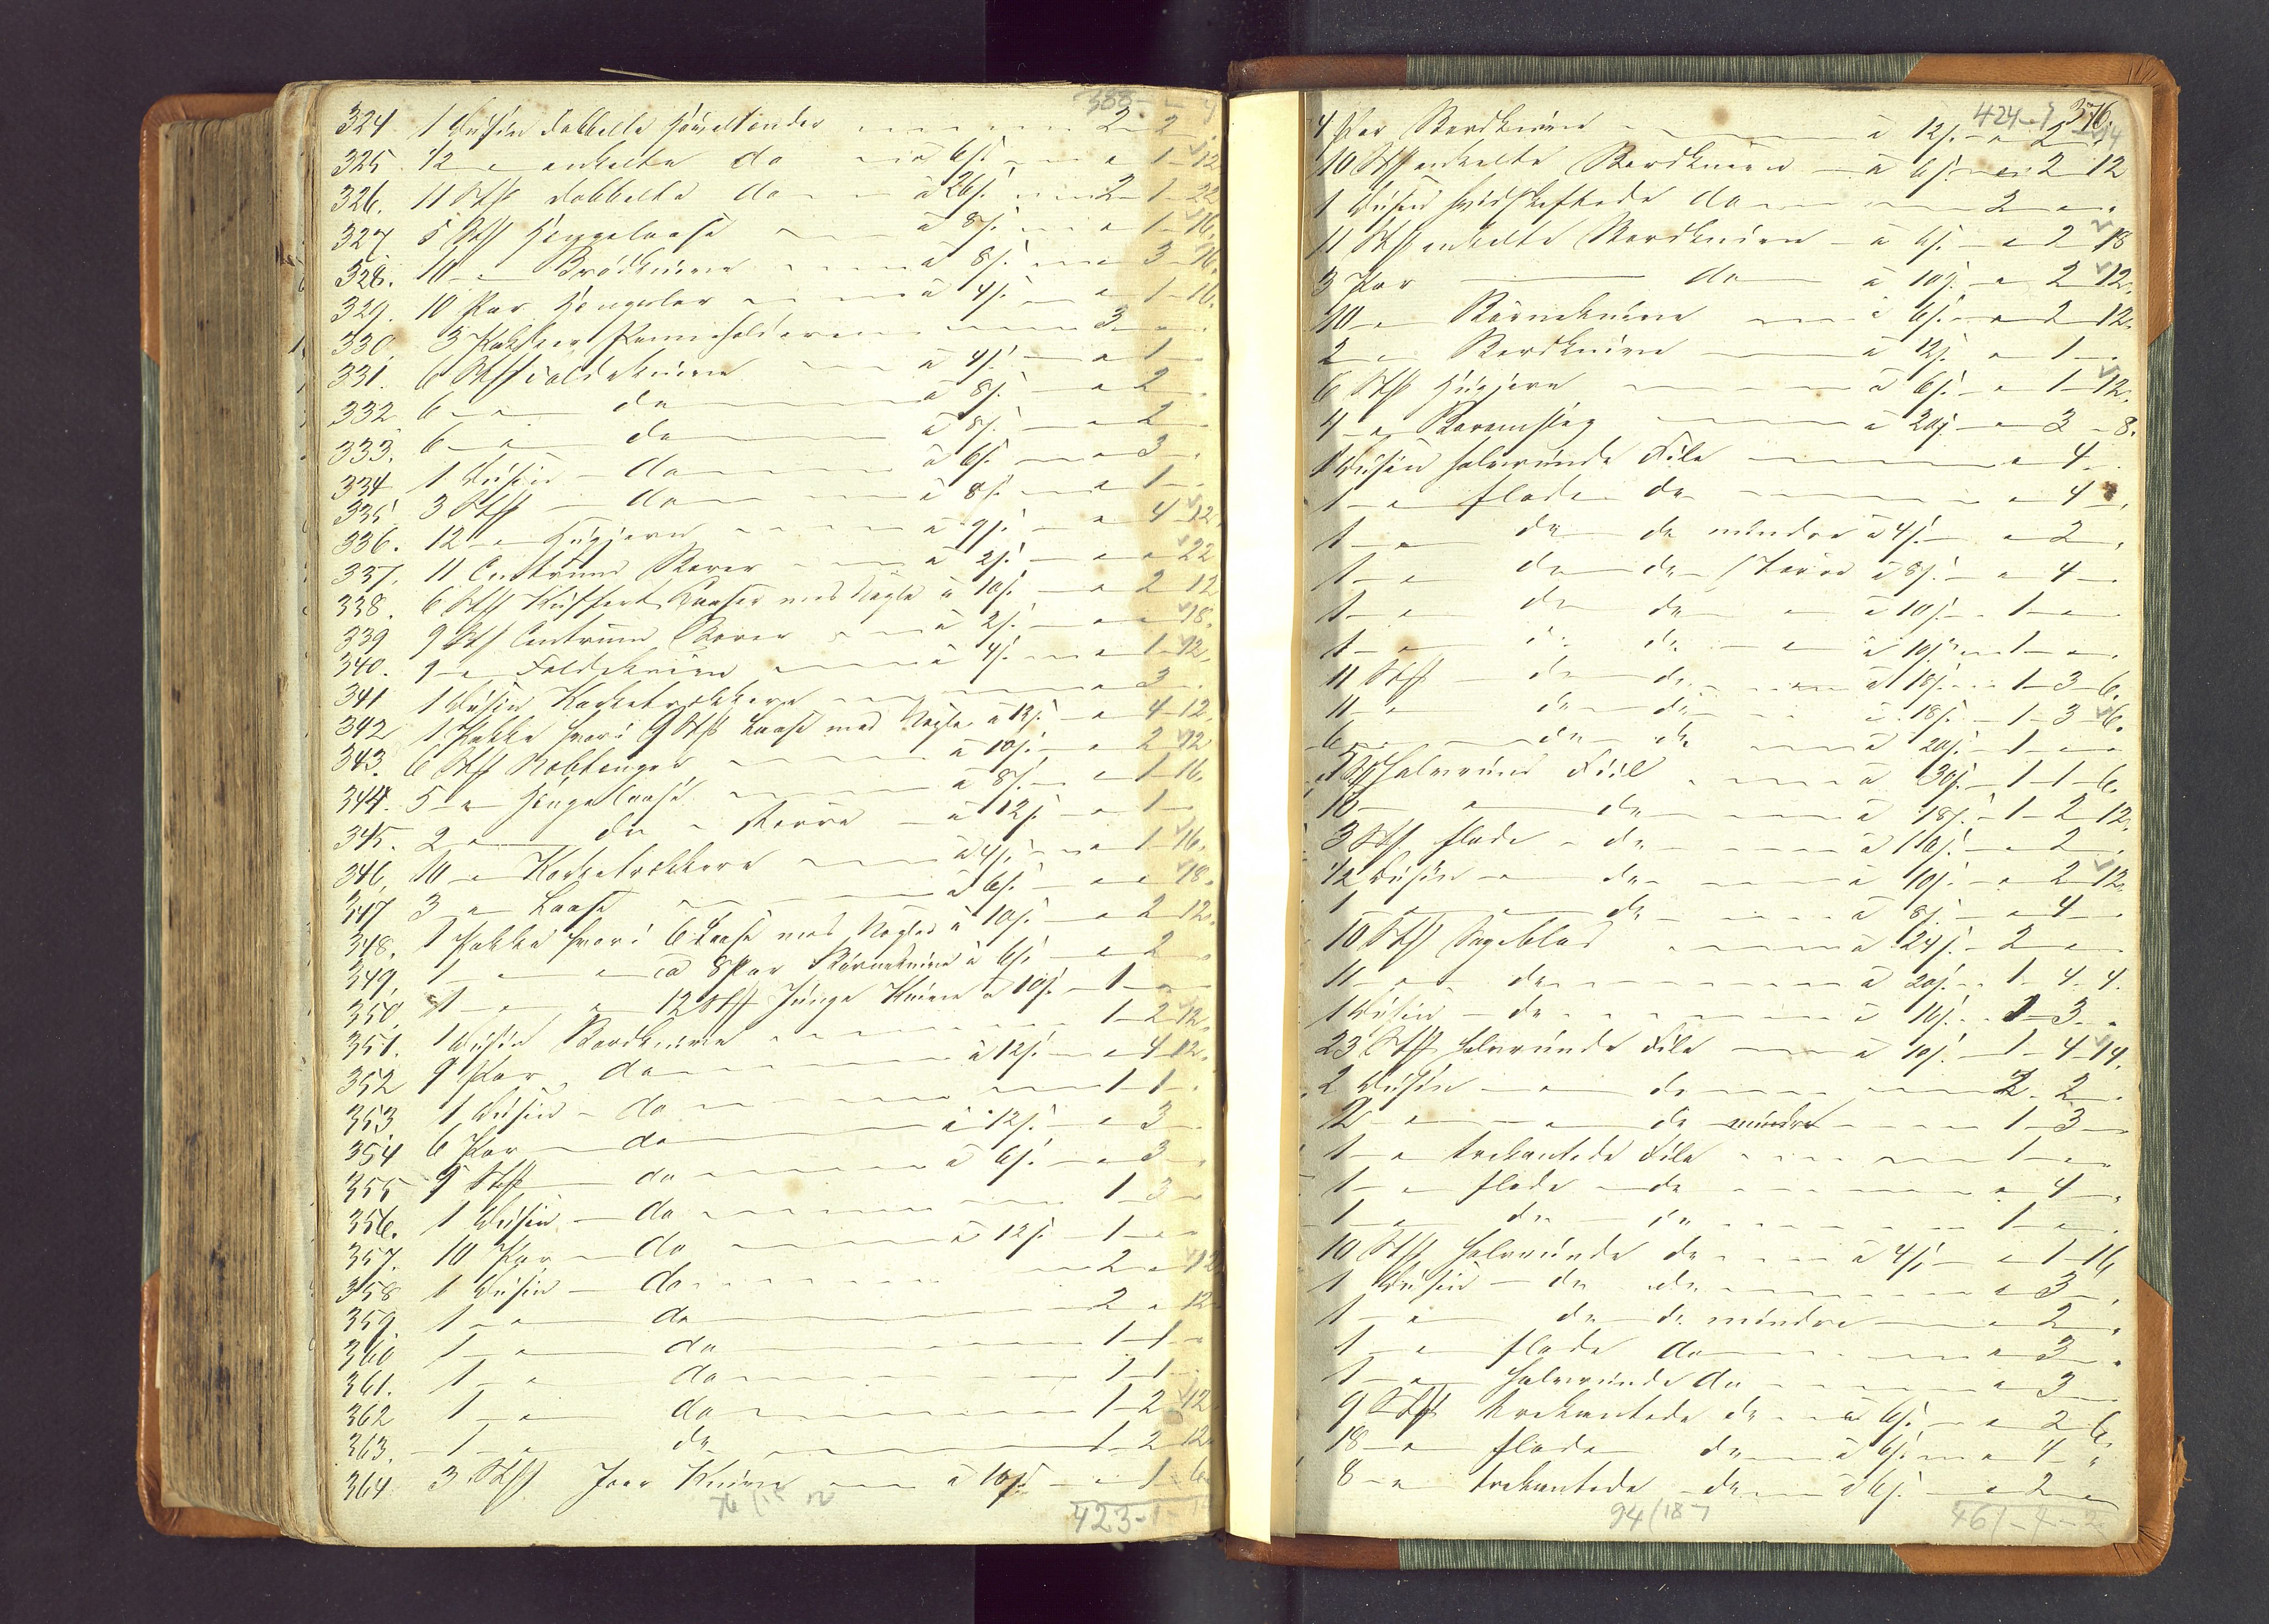 388
324. 1 Dusin dobbelte Høveltænder 2-2-.
325. 12 " enkelte do à 6 s. " 1-12
326. 11 Stk dobbelte do à 26 s. 2-1-22
327 5 Stk Hængelaase à 8 s. " 1-16.
328. 10 " Brödknive à 8 s. " 3-16.
329. 10 Par Hængsler à 4 s. " 1-16.
330. 3 Pakker Penneholdere 3
331. 6 Stk Foldeknive à 4 s. " 1-
332 6 " do à 8 s. " 2
333. 6 " do à 8 s. " 2
334 1 Dusin do à 6 s. " 3
335 3 Stk do à 8 s. " 1
336. 12 " Hugjern à 9 s. " 4-12.
337. 11 Centrum Borer à 2 s. " " 22
338. 6 Stk Kuffert Laaser med Nøgle à 10 s. " 2-12
339 9 Stk Centrum Borer à 2 s. " " 18.
340. 9 " Foldeknive à 4 s. " 1-12.
341 1 Dusin Korketrækkere " 3
342 1 Pakke hvori 9 Stk Laase med Nøgle à 12 s. " 4-12.
343. 6 Stk Knibtenger à 10 s. " 2-12
344. 5 " Hængelaase à 8 s. " 1-16.
345. 2 " do større à 12 s. " 1
346. 10 " Korketrækkere à 4 s. " 1-16.
347 3 " Laase à 6 s. " " 18.
348. 1 Pakke hvori 6 Laase med Nøgler à 10 s. " 2-12.
349. 1 " " 8 Par Börneknive à 6 s. " 2
350. 1 " " 12 Stk Junge Knive à 10 s. 1
351. 1 Dusin Bordknive 1-2-12.
352 9 Par do à 12 s. " 4-12.
353 1 Dusin do 1-1-.
354 6 Par do à 12 s. " 3
355 9 Stk do à 6 s. " 3
356. 1 Dusin do 1-3
357. 10 Par do à 12 s. 1
358 1 Dusin do 2 " 12
359. 1 " do 2 " 12
360 1 " do 1-1
361. 1 " do 1-1
362 1 " do 1-2-12
363. 1 " do 1-2-12
364 3 Stk Knive à 10 s. " 1-6
423-1-
424 376.
4 Par Bordknive à 12 s. " 2
10 Stk enkelte Bordknive à 6 s. " 2-12
1 Dusin hvidskaftede do 2 " "
11 Stk enkelte Bordknive à 6 s. " 2-18
3 Par do à 10 s. " 2-12.
10 " Börneknive à 6 s. " 2-12.
2 " Bordknive à 12 s. " 1-.
6 Stk Hugjern à 6 s. " 1-12.
4 " à 20 s. " 3-8.
1 Dusin halvrunde File " 4-.
1 " flade do " 4-.
1 " do do mindre à 4 s. " 2
1 " do do større à 8 s. " 4-.
1 " do do " à 10 s. 1
1 " do do " à 10 s. 1
11 Stk do do à 18 s. 1-3-6.
11 " do do à 18 s. 1-3-6.
6 " do do à 20 s. 1
halvrund Fiil à 30 s. 1-1-6.
" do à 18 s. 1-2-12.
3 Stk flade do à 16 s. " 2
1/2 Dusin " do à 10 s. " 2-12.
1 " " do à 8 s. " 4
10 Stk Sageblad à 24 s. 2
11 " do à 20 s. 1-4-4.
1 Dusin do à 16 s. 1-3-.
23 Stk halvrunde File à 10 s. 1-4-14.
2 Dusin " do 2-2-.
2 " " do mindre 1-3
1 " trekantede File 1
1 " flade do " 4
1 " do do 1
10 Stk halvrunde do à 4 s. " 1-16
1 Dusin do do " 3
1 " do do mindre " 2
1 " flade do " 3
1 " halvrunde do " 3
9 Stk trekantede do à 6 s. " 2-6.
18 " flade do à 6 s. " 4 "
8 " trekantede do à 6 s. " 2
94/187
461-4-2